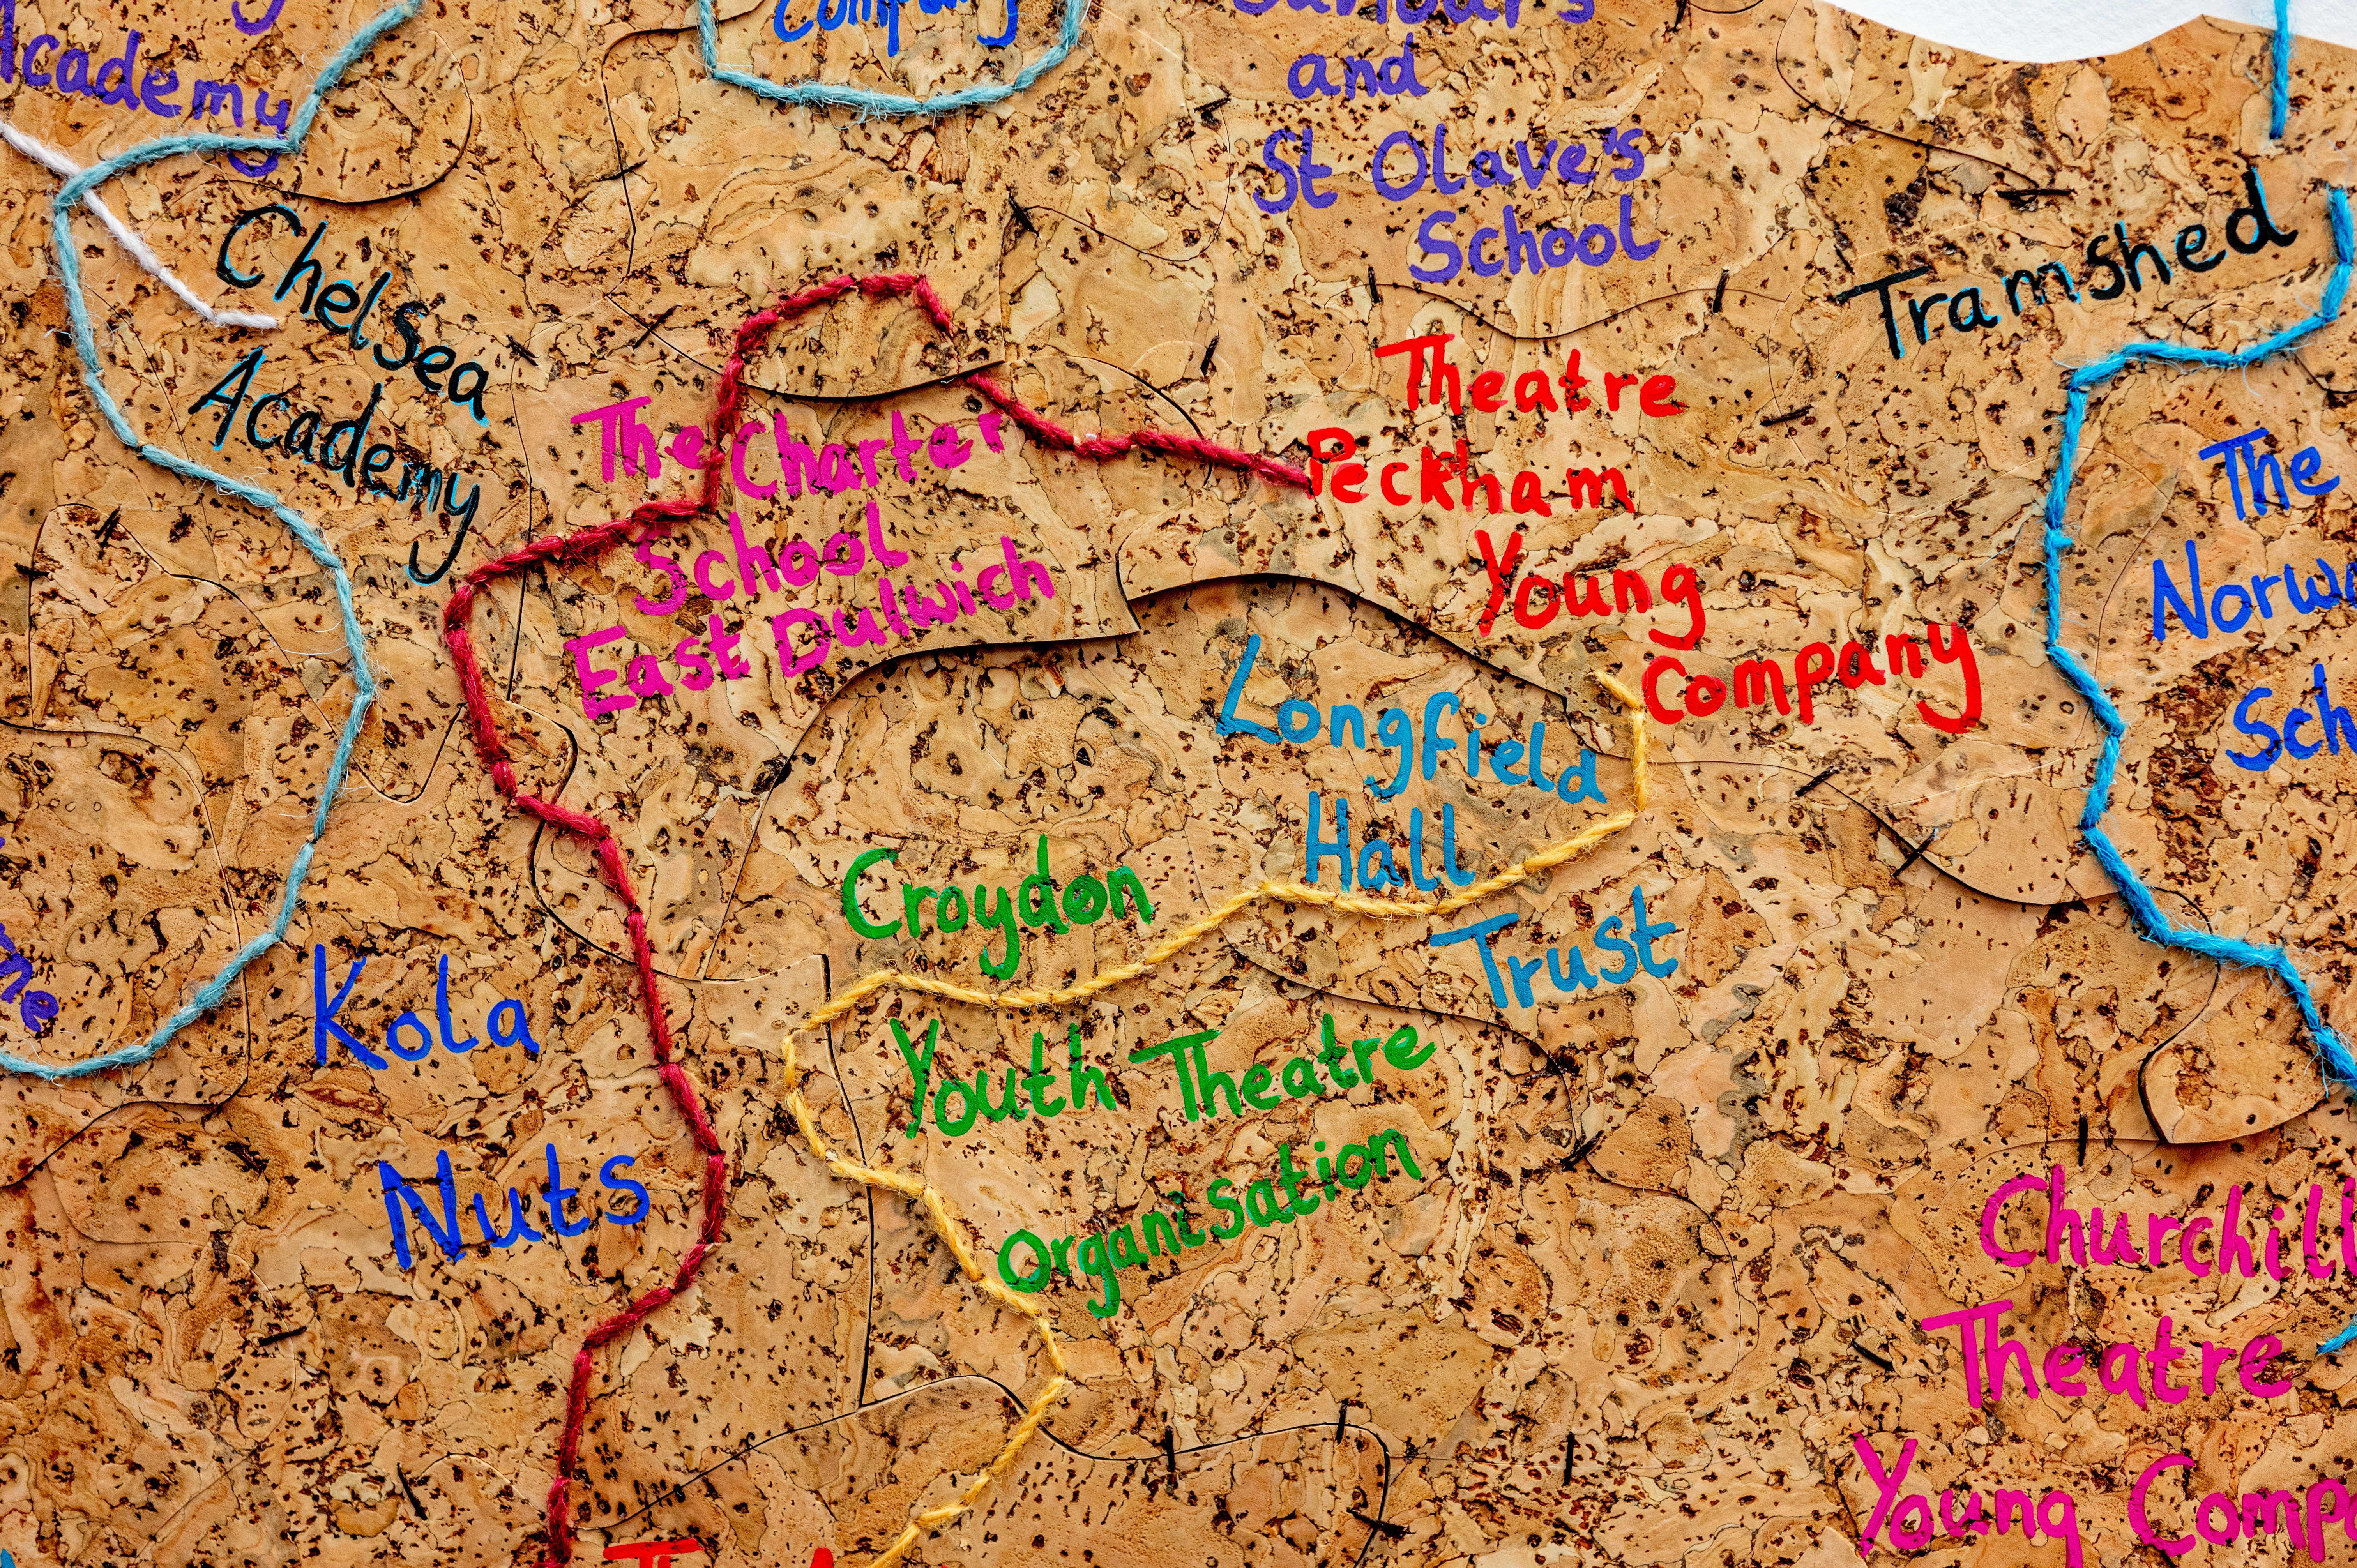 Academy
Company
and
St Olave's
School
Chelsea
Academy
Tramshed
The Charter
School
East Dulwich
Theatre
Peckham
Young
Company
The
Longfield
Hall
Trust
Croydon
Youth Theatre
Organisation
Kola
Nuts
Churchill
Theatre
Young